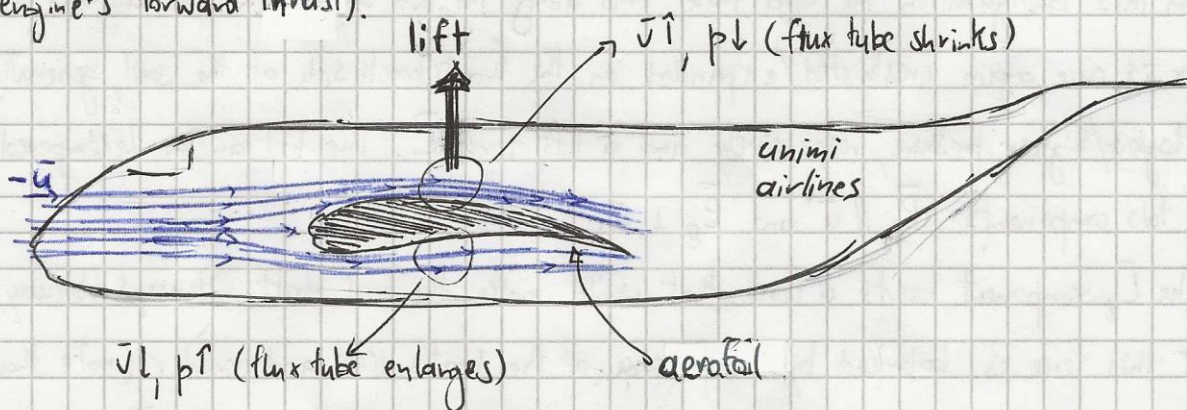 engine's forward thrust).
lift
v̄↑, p↓ (flux tube shrinks)
-ū
unimi
airlines
v̄↓, p↑ (flux tube enlarges)
aerofoil